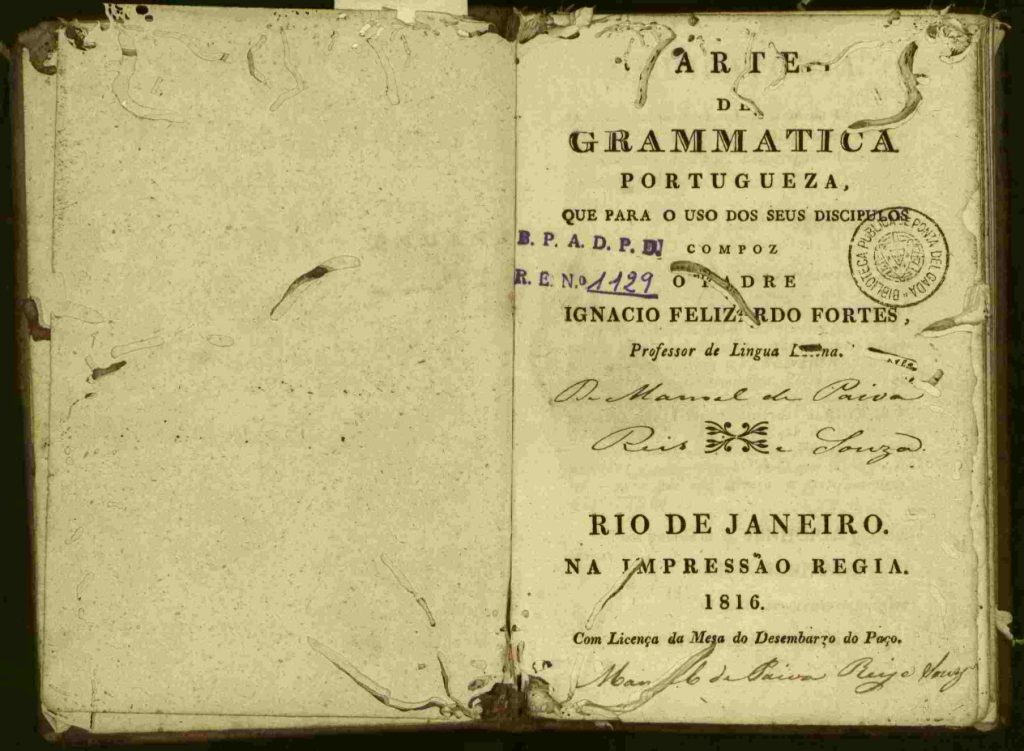 ARTE
DE
GRAMMATICA
PORTUGUEZA,
QUE PARA O USO DOS SEUS DISCIPULOS
COMPOZ
O PADRE
IGNACIO FELIZARDO FORTES,
Professor de Lingua Latina.
B. P. A. D. P. D.
R. E. N.º 1129
BIBLIOTECA PUBLICA DE PONTA DELGADA
De Manoel de Paiva
Reis e Souza
RIO DE JANEIRO.
NA IMPRESSÃO REGIA.
1816.
Com Licença da Mesa do Desembargo do Paço.
de Paiva Reis e Souz